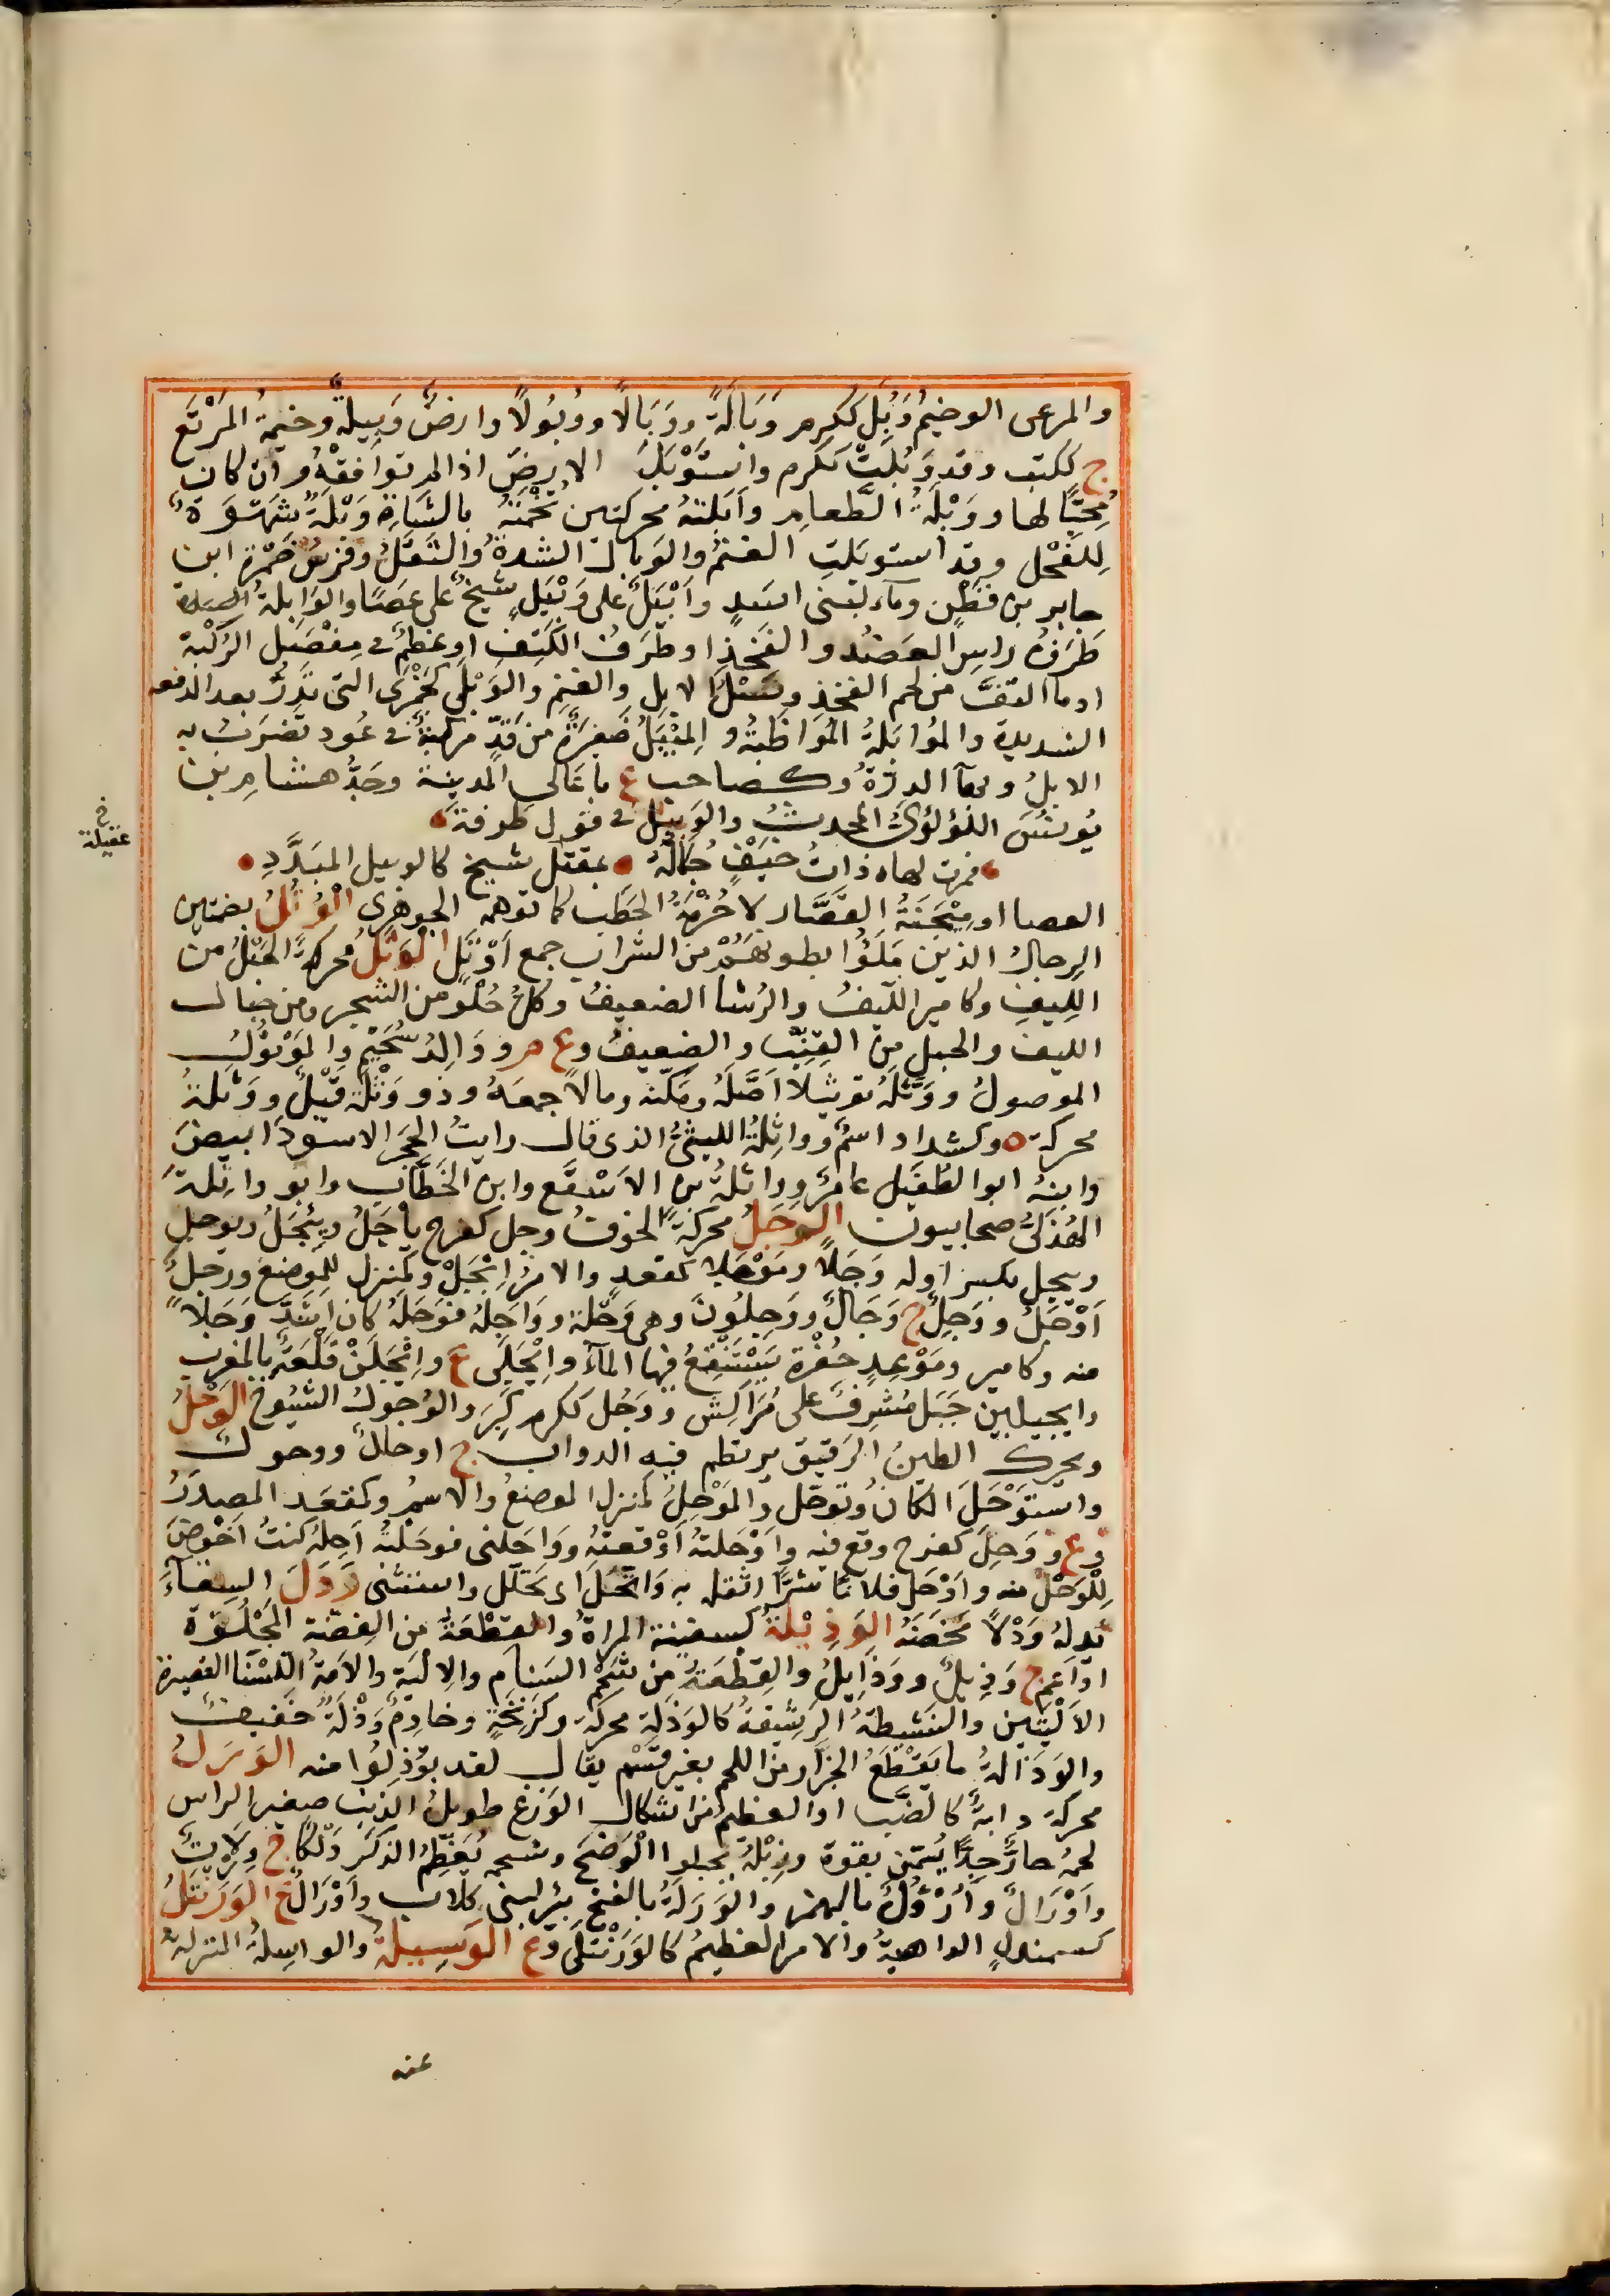 والمرعى الوخيم وَبُلَ ككرم وَبَالَةً ووَبَالًا ووُبُولًا وارضٌ وَبِيلَةٌ وخيمةُ المَرْتَع
ج ككتب وقد وَبُلَتْ ككرم واستَوْبَلَ الارضَ اذا لم توافقْهُ وان كان
مُحِبًّا لها ووَبَلَةُ الطَّعامِ وأَبَلَتُهُ محركتين تُخْمَتُهُ بالشَّاةِ وَبَلَةٌ شَهْوَةٌ
لِلفَحْل وقد استوبلتِ الغنمُ والوبال الشدةُ والثقَلُ وفرسُ ضَمْرَةَ ابن
جابر بن قَطَنٍ وماء لبنى اسَدٍ وأَبِيلٌ على وَبِيلٍ شيخٌ على عَصًا والوَابِلةُ
طَرَفُ راسِ العضُدِ والفَخِذِ او طَرَفُ الكَتِفِ او عَظمٌ فى مِفْصَلِ الرُكْبَة
او ما التفَّ من لحم الفخذِ ونَسْلُ الابِلِ والغنمِ والوَبَلَى كَجَمَزَى التى تَدِرُّ بعد الدفعة
الشديدة والمُوَابَلَةُ المُوَاظَبَةُ والمِيبَلُ ضَفِيرَةٌ من قِدٍّ مركبةٌ فى عُود تُضْرَبُ به
الابلُ و الدِرَّةُ وكصاحب ع باعَالى المدينة وجَدُّ هشامِ بن
يُونسَ اللؤلؤىِّ المحدثُ والوَبِيلُ فى قول طرفةَ
فمرت كهاه ذاتُ خَيْفٍ جُلَالَةٌ عقيلة شيخ كالوبيل المبَدَّدِ
العصا او مِيْجَنَةُ القصَّار لا حُزْمَةُ الحَطَب كما توهم الجوهرى الوُتُلُ بضمتين
الرِجالُ الذينَ مَلَؤُا بطونَهُمْ من الشراب جمع أَوْتَلَ الوَثَلُ محركةً الحَبْلُ من
اللِيفِ وكامير اللّيفُ والرُشاء الضعيفُ وكلُّ خَلَقٍ من الشجر ومن حبال
الليف والحبل من القِنَّبِ والضعيفُ وع م ووَالِدُ سُحَيْمٍ والمَوْثُولُ
الموصولُ ووَثَّلَهُ توثيلًا أَصَّلَهُ ومَكَّنَهُ ومالًا جمعَهُ وذو وَثْلَةَ قَيْلٌ ووَثَلَةُ
محركة ه وكشداد اسمٌ وواثِلَةُ الليثىُّ الذى قال رايتُ الحَجَرَ الاسودَ ابيضَ
وابنهُ ابو الطفَيل عامرٌ وواثلةُ بن الاَسْقَع وابن الخَطَّابِ وابو واثِلةَ
الهُذَلىُّ صحابيون الوَجَلُ محركةً الخوفُ وجِل كفرح يأْجَلُ ويَيْجَلُ ويوجل
ويِجل بكسر اوله وَجَلًا ومَوْجَلًا كمقعدٍ والامرُ اِيْجَلْ وكمنزِلٍ للموضعِ ورجلٌ
أَوْجَلُ ووَجِلٌ ج وِجَالٌ ووَجِلُونَ وهى وَجِلَةٌ ووَاجَلَهُ فوجَلَهُ كان اشَدَّ وَجَلًا
منه وكامير ومَوْعِدٍ حُفْرَةٌ يَسْتَنْقِعُ فيها الماءُ وإِيْجَلَى ع وإِيْجَلِنْ قَلْعَةٌ بالمغرب
وايجيلين جَبَلٌ مُشْرِفٌ على مُرَّاكِش ووَجُل ككرم كَبِرَ والوُجولُ الشيُوخُ الوَحْلُ
ويحرك الطينُ الرَقيق يرتطم فيه الدواب ج اوحالٌ ووحول
واستَوْحَلَ المكانُ وتوحّل والمَوْحِلُ كمنزل الموضعُ والاسمُ وكمقعد المصدَرُ
وع ووَحِلَ كفرح وقع فيه وأَوْحَلتُهُ أَوْقعتُهُ ووَاحَلنى فوَحَلْتُهُ أَحِلُهُ كنتُ أَخْوَضَ
لِلْوَحْلِ منه وأَوْحَل فلانًا شَرًّا اثقله به وَاتَّحَلَ اى تحَلّل واستثنى وَدَلَ السِقاءَ
يَدِلهُ وَدْلًا مَخَضَهُ الوَذِيْلَةُ كسفينة المراةُ والقِطْعَةُ من الفِضَّة المَجْلُوَّة
او اَعم ج وَذِيلٌ ووَذَايِلُ والقِطْعَةُ من شَحْمِ السَنام والالْيَةِ والاَمَةُ اللَّسْنَا القصيرة
الاَلْيَتَين والنَشيطةُ الرَشيقةُ كالوَذَلةِ محركةً وكزَنِخَةٍ وخادِمٌ وَذْلَةٌ خفيفٌ
والوَذَالةُ ما يَقْطَعُ الجزّار من اللحم بغير قَسْمٍ يقال لقد توَذَّلُوا منه الوَرَلُ
محركة دابةٌ كالضَّبِ او العظيمُ من اشكال الوَزَغ طويلُ الذَنَبِ صغير الراس
لحمُهُ حارٌّ جِدًّا يُسَمّن بقوة وزِبْلُهُ يجلوا الوَضَحَ وشحمه يُعَظِّمُ الذكَرَ دَلْكًا ج وِرْلَانٌ
وأَوْرَالٌ وأَرْؤُلٌ بالهمز والوَرَلَةُ بالفتح بئر لبنى كلاب وأَوْرَالٌ ع الوَرَنْتَلُ
كسمندلٍ الداهيةُ والامر العظيمُ كالوَرَنْتَلَى وع الوَسِيلَةُ والواسِلةُ المنزلةُ
خ
عقيلة
عند